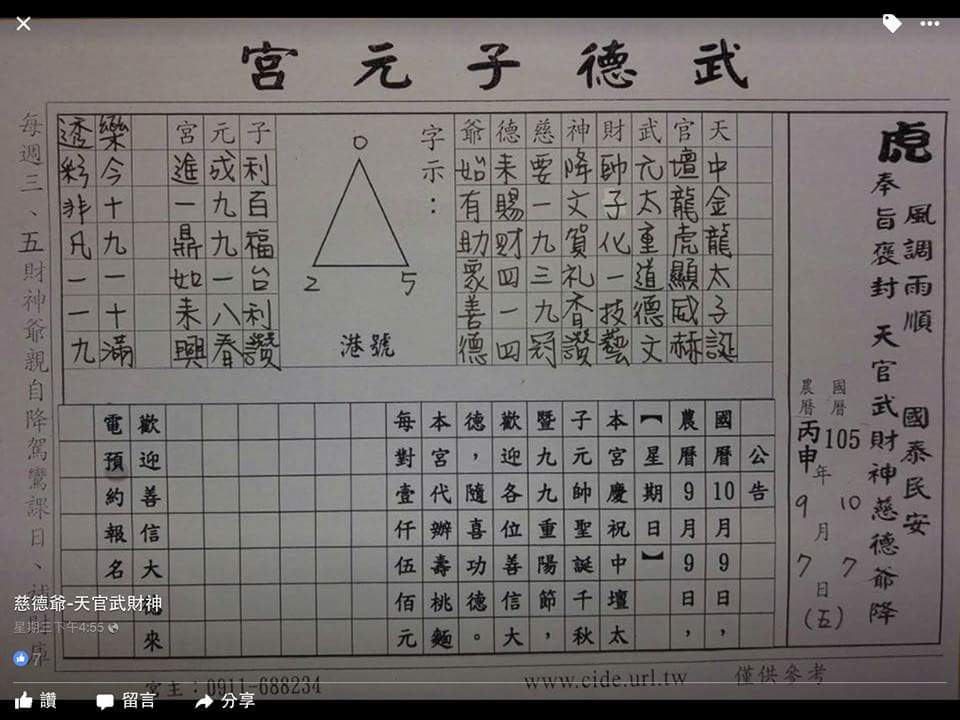 武德子元宮
虎
風調雨順 國泰民安
奉旨褒封 天官武財神慈德爺降
國曆 105 年 10 月 7 日 (五)
農曆 丙申 年 9 月 7 日
天中金龍太子誕
官壇龍虎顯威赫
武元太重道德文
財帥子化一技藝
神降文賀礼香讚
慈要一九三九冠
德來賜財四一四
爺始有助眾善德
字示：
0
2 5
港號
子利百福台利讚
元成九九一八春
宮進一鼎如來興
樂今十九一十滿
透彩非凡一一九
公告
國曆10月9日，
農曆9月9日
【星期日】
本宮慶祝中壇太
子元帥聖誕千秋
暨九九重陽節，
歡迎各位善信大
德，隨喜功德。
本宮代辦壽桃麵
每對壹仟伍佰元
歡迎善信大 來
電預約報名
每週三、五財神爺親自降駕鸞課日、
慈德爺-天官武財神
星期三下午4:55
7
宮主：0911-688234
www.cide.url.tw
僅供參考
讚 留言 分享